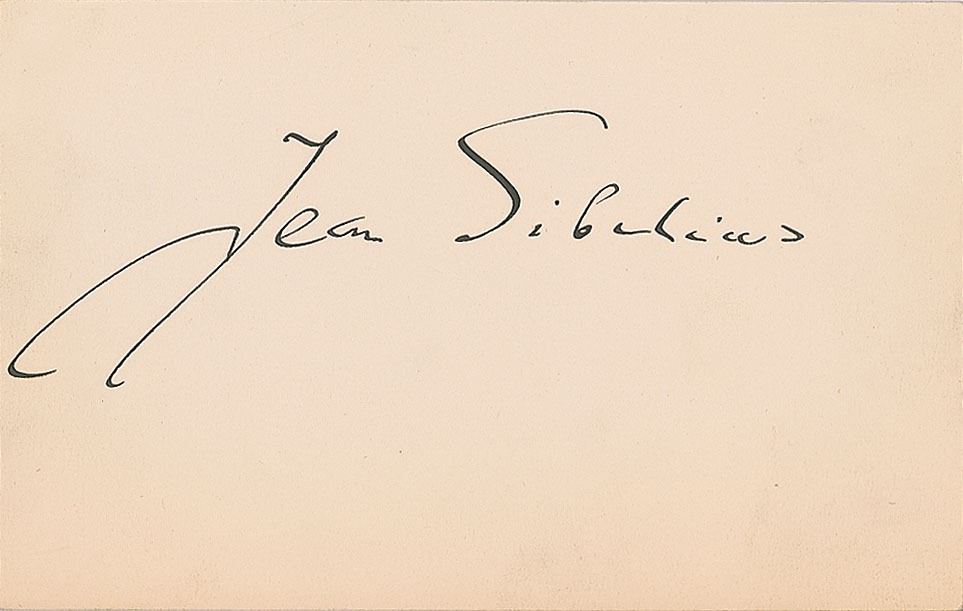 Jean Sibelius